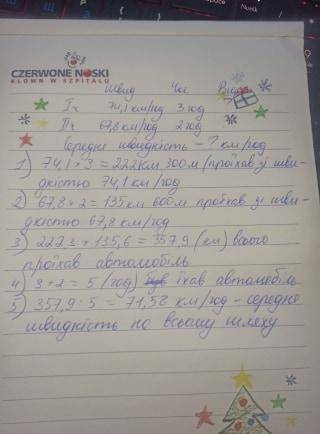 CZERWONE NOSKI
KLOWN W SZPITALU
Швид Час Відст
Iч 74,1 км/год 3 год
IIч 67,8 км/год 2 год
Середня швидкість - ? км/год
1) 74,1 × 3 = 222 км 300 м проїхав зі шви-
дкістю 74,1 км/год
2) 67,8 × 2 = 135 км 600 м проїхав зі шви-
дкістю 67,8 км/год
3) 222,3 + 135,6 = 357,9 (км) всього
проїхав автомобіль
4) 3 + 2 = 5 (год) їхав автомобіль
5) 357,9 : 5 = 71,58 км/год - середня
швидкість по всьому шляху